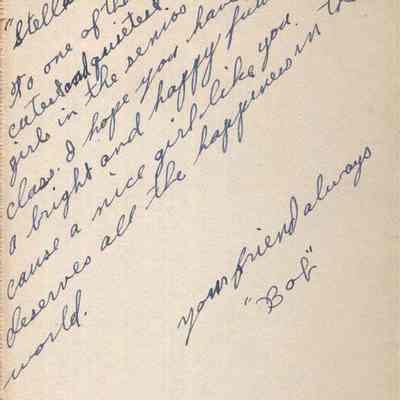 "Stella
to one of the
cutest and quietest
girls in the senior
class. I hope you have
a bright and happy fu
cause a nice girl like you
deserves all the happiness in th
world.
your friend always
"Bob"